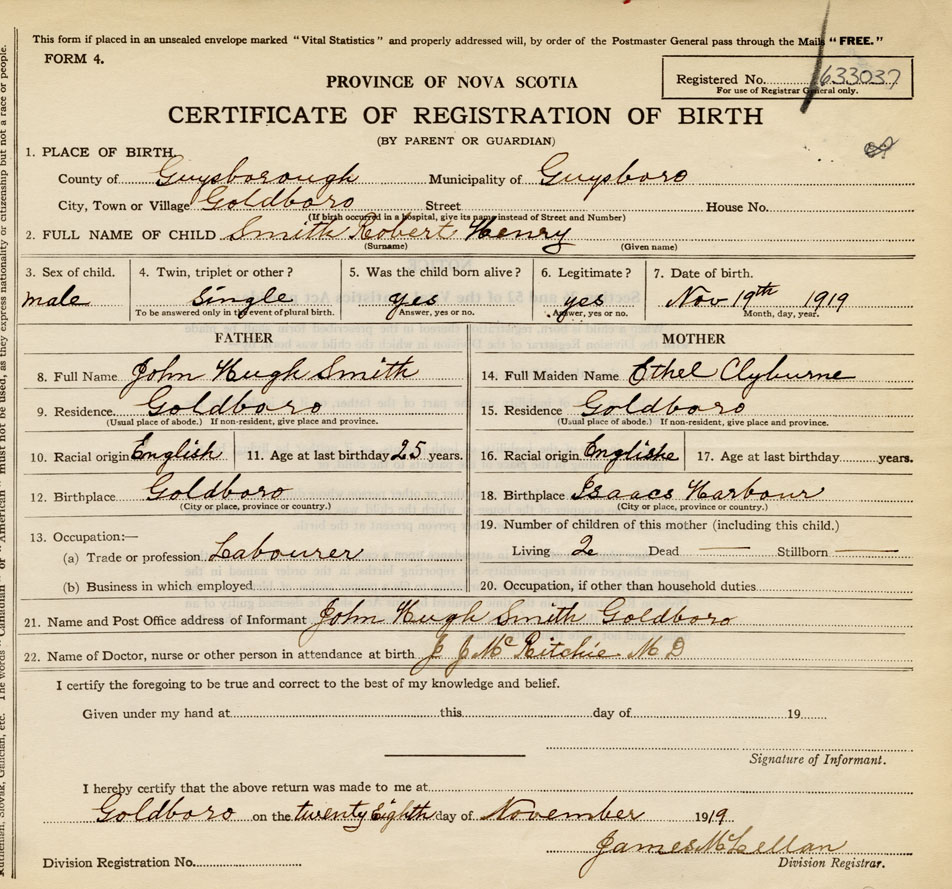 This form if placed in an unsealed envelope marked “Vital Statistics” and properly addressed will, by order of the Postmaster General pass through the Mails “FREE.”
FORM 4.
Registered No. 633037
For use of Registrar General only.
PROVINCE OF NOVA SCOTIA
CERTIFICATE OF REGISTRATION OF BIRTH
(BY PARENT OR GUARDIAN)
1. PLACE OF BIRTH
County of Guysborough Municipality of Guysboro
City, Town or Village Goldboro Street House No.
(If birth occurred in a hospital, give its name instead of Street and Number)
2. FULL NAME OF CHILD Smith Robert Henry
(Surname) (Given name)
3. Sex of child. 4. Twin, triplet or other? 5. Was the child born alive? 6. Legitimate? 7. Date of birth.
male Single yes yes Nov 19th 1919
To be answered only in the event of plural birth. Answer, yes or no. Answer, yes or no. Month, day, year.
FATHER MOTHER
8. Full Name John Hugh Smith 14. Full Maiden Name Ethel Clyburne
9. Residence Goldboro 15. Residence Goldboro
(Usual place of abode.) If non-resident, give place and province. (Usual place of abode.) If non-resident, give place and province.
10. Racial origin English 11. Age at last birthday 25 years. 16. Racial origin Englishe 17. Age at last birthday years.
12. Birthplace Goldboro 18. Birthplace Isaacs Harbour
(City or place, province or country.) (City or place, province or country.)
13. Occupation:— 19. Number of children of this mother (including this child.)
(a) Trade or profession Labourer Living 2 Dead — Stillborn —
(b) Business in which employed 20. Occupation, if other than household duties
21. Name and Post Office address of Informant John Hugh Smith Goldboro
22. Name of Doctor, nurse or other person in attendance at birth J J McRitchie M D
I certify the foregoing to be true and correct to the best of my knowledge and belief.
Given under my hand at this day of 19
Signature of Informant.
I hereby certify that the above return was made to me at
Goldboro on the twenty Eighth day of November 1919
James McLellan
Division Registration No. Division Registrar.
Ruthenian, Slovak, Galician, etc. The words “Canadian” or “American” must not be used, as they express nationality or citizenship but not a race or people.